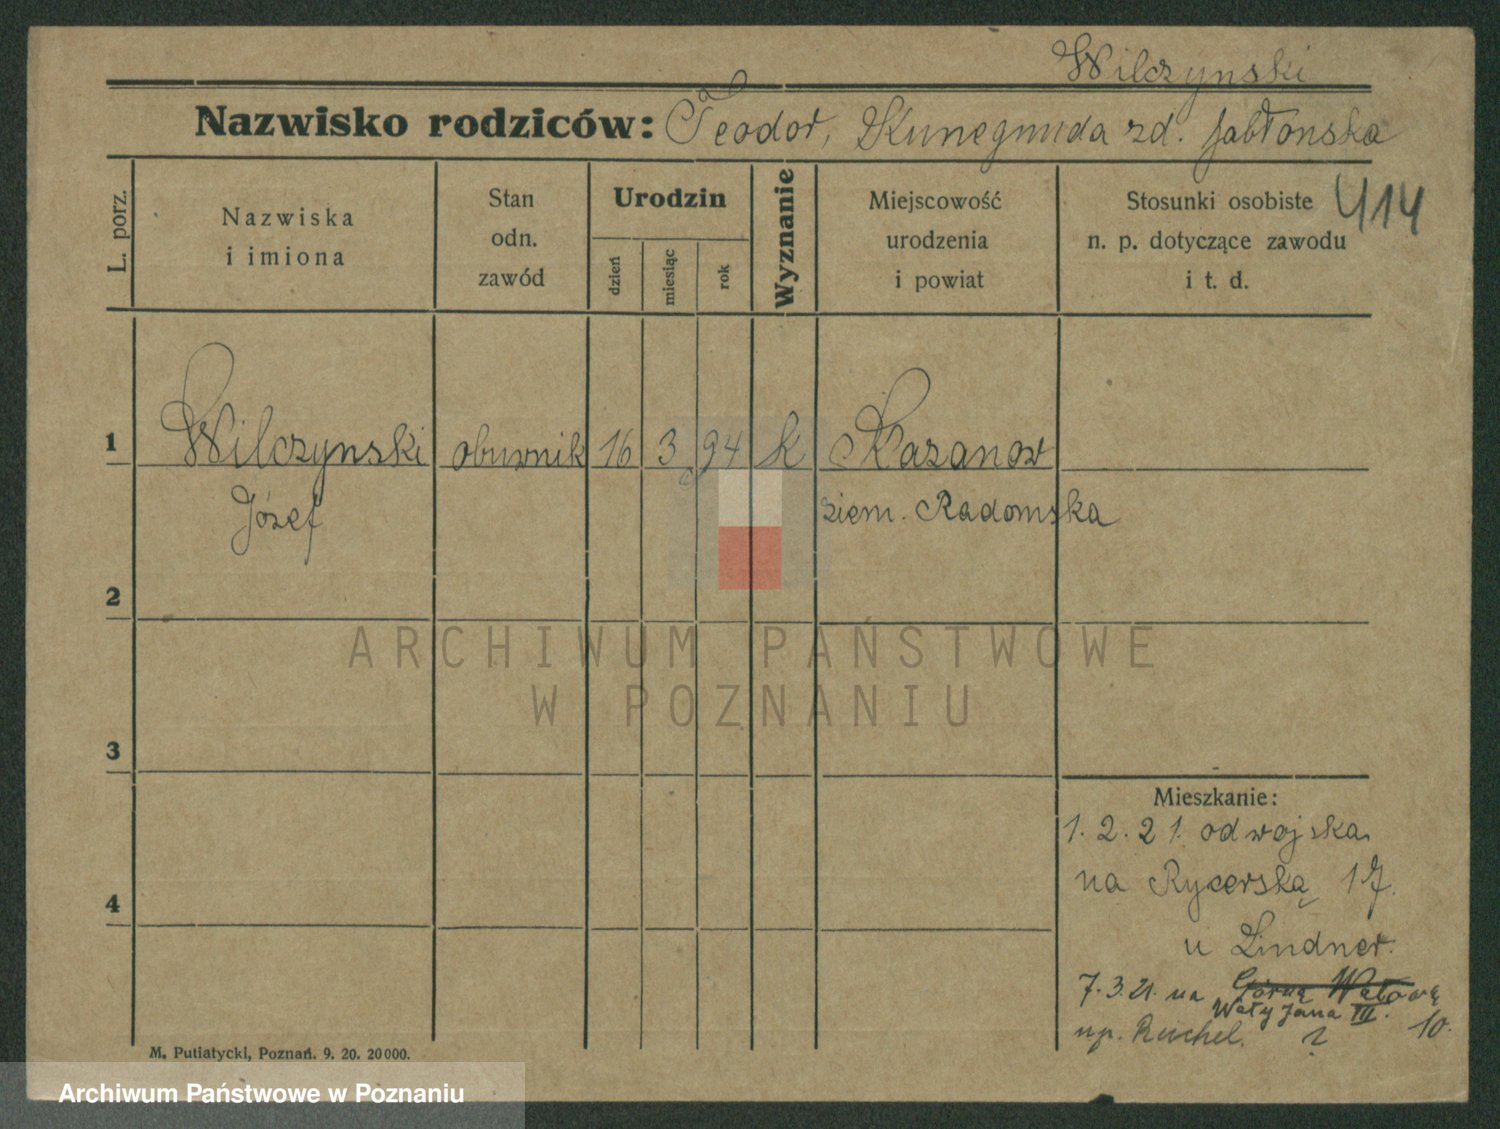 Wilczynski
Nazwisko rodziców: Teodor, Kunegunda zd. Jabłonska
L. porz.
Nazwiska
i imiona
Stan
odn.
zawód
Urodzin
dzień
miesiąc
rok
Wyznanie
Miejscowość
urodzenia
i powiat
Stosunki osobiste
n. p. dotyczące zawodu
i t. d.
414
1 Wilczynski obuwnik 16 3 94 k Kazanow
Józef ziem. Radomska
2
3
4
Mieszkanie:
1. 2. 21. od wojska
na Rycerską 17.
u Lindner.
7. 3. 21. na Górną Wałową
Wały Jana III. 10.
np. ?
M. Putiatycki, Poznań. 9. 20. 20000.
ARCHIWUM PAŃSTWOWE
W POZNANIU
Archiwum Państwowe w Poznaniu